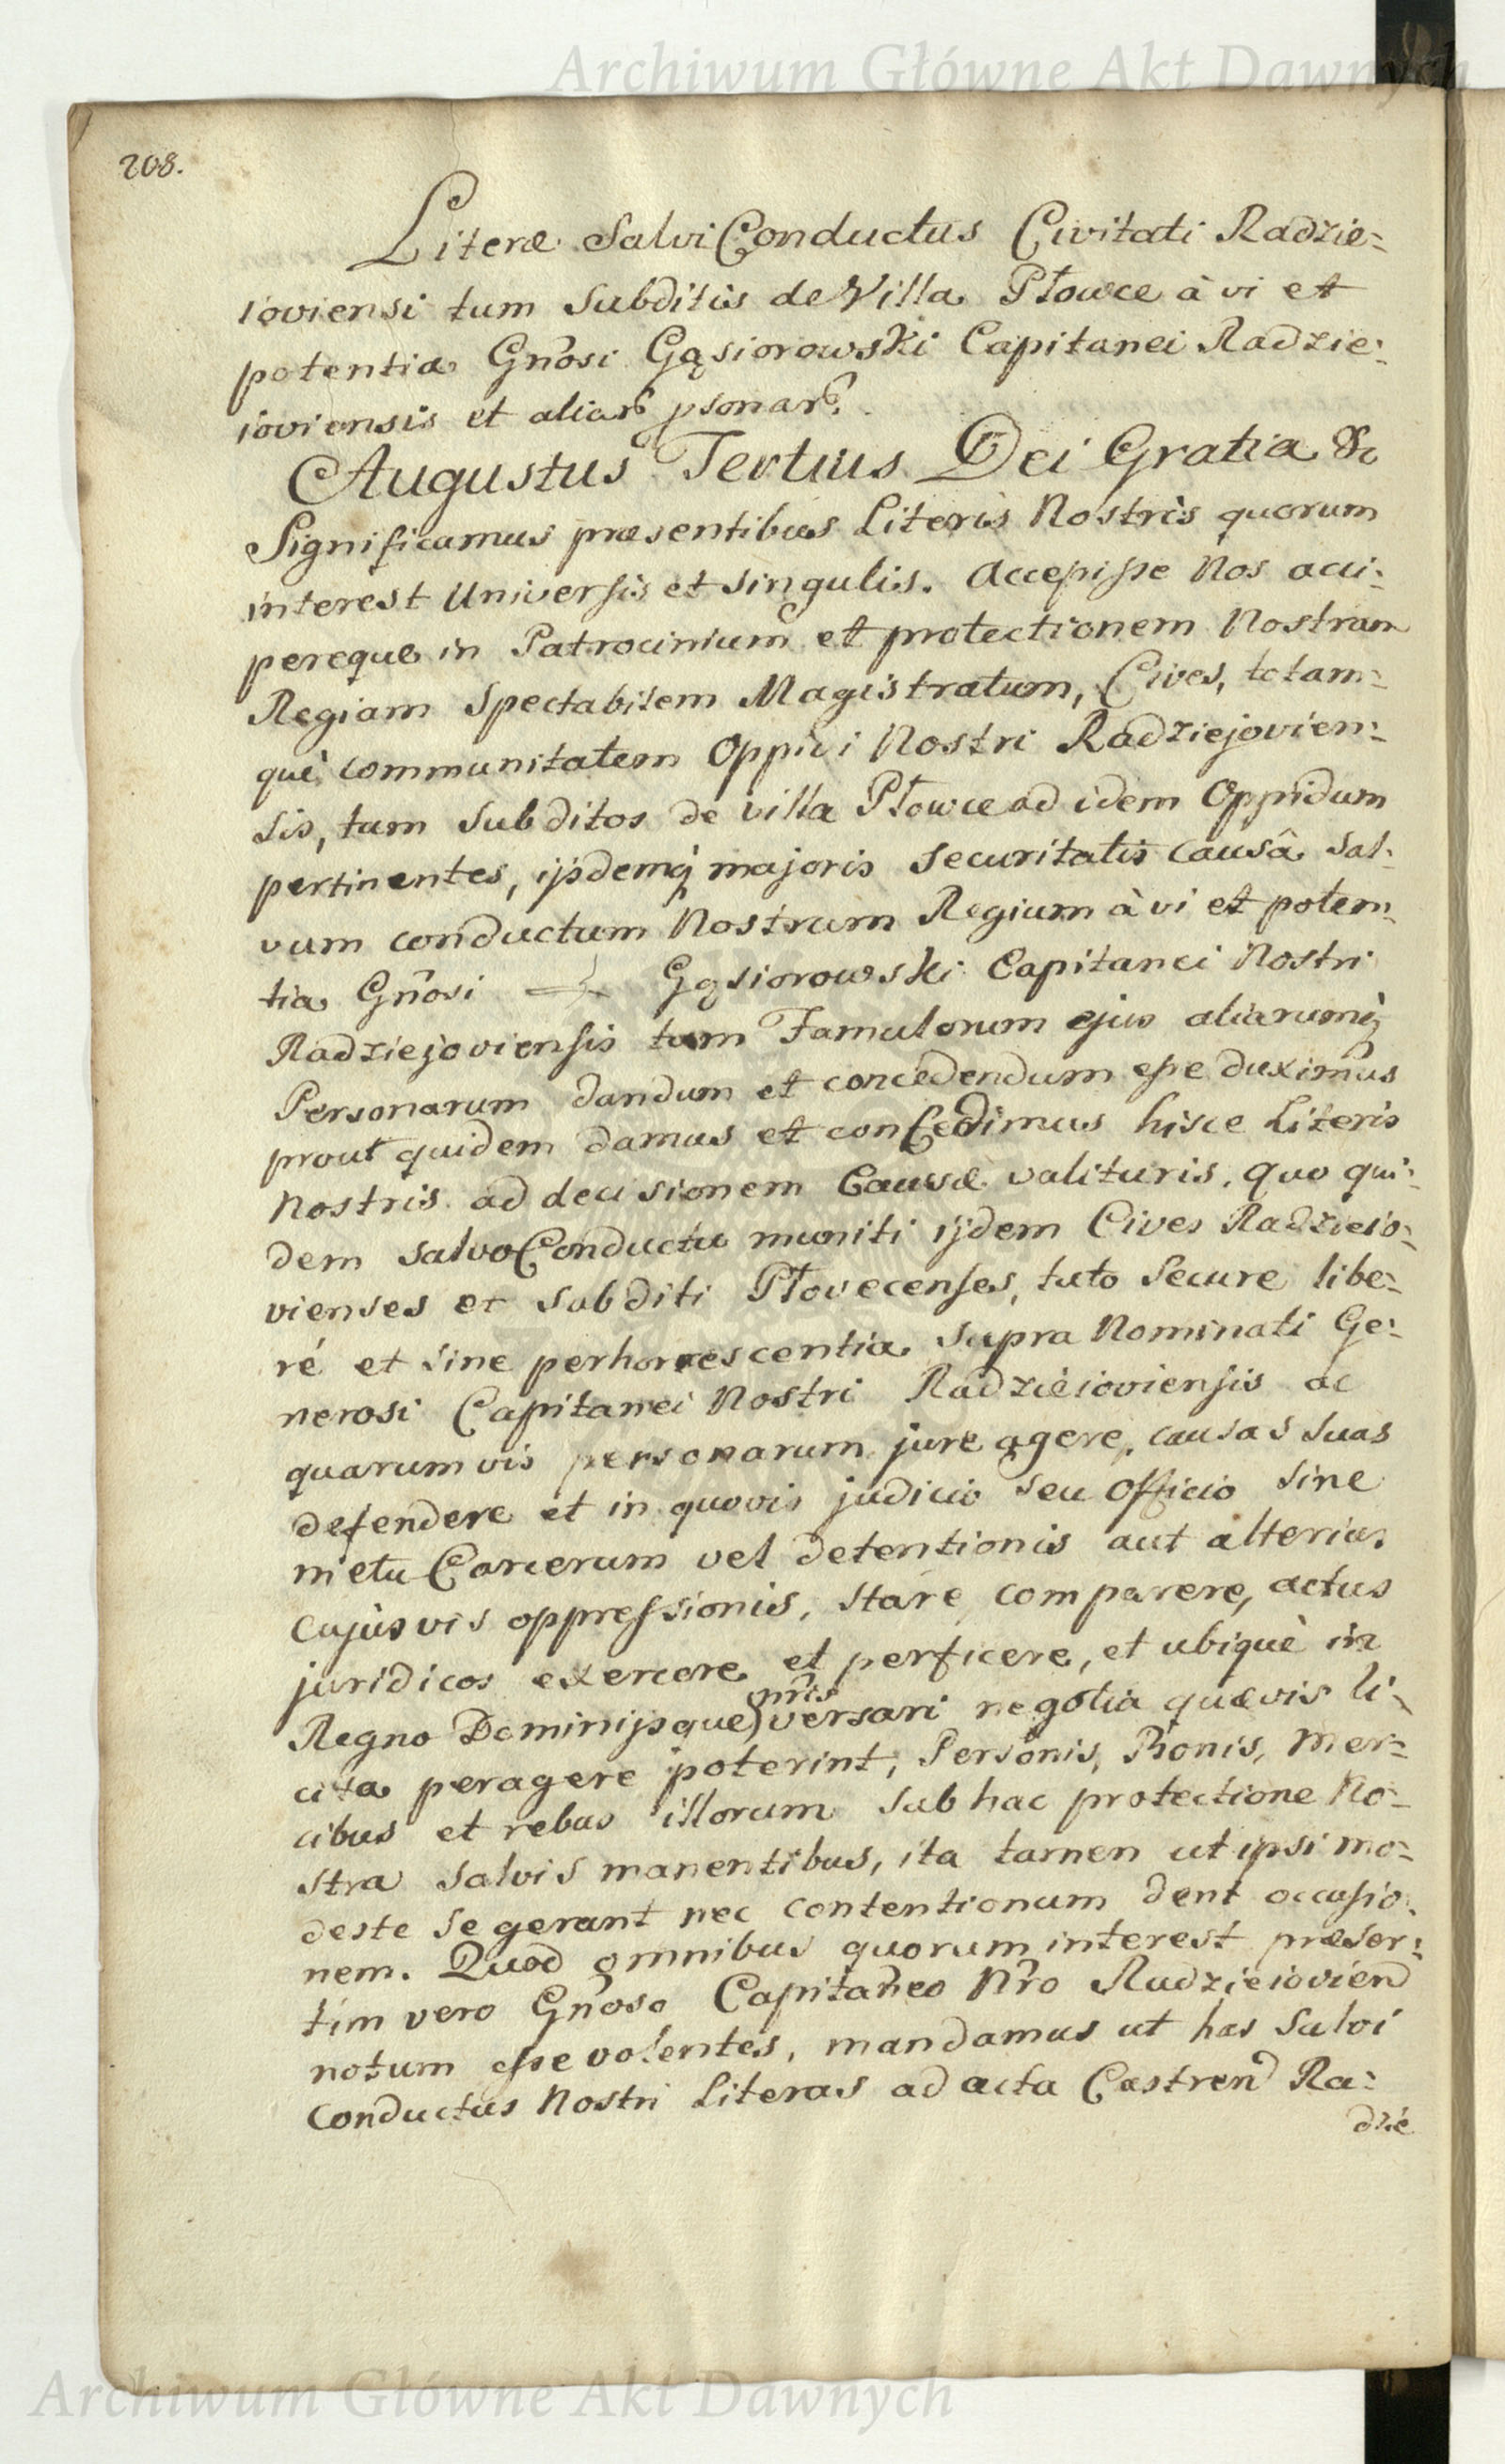 Archiwum Główne Akt Dawnych
208.
Literæ Salvi Conductus Civitati Radzie=
ioviensi tum Subditis de Villa Płowce à vi et
potentia Gn̄osi Gąsiorowski Capitanei Radzie:
ioviensis et aliar̄ psonar̄.
Augustus Tertius Dei Gratia &c
Significamus præsentibus Literis Nostris quorum
interest Universis et singulis. Accepisse Nos acci:
pereque in Patrocinium et protectionem Nostram
Regiam Spectabilem Magistratum, Cives, totam=
què communitatem Oppidi Nostri Radziejovien:
sis, tum Subditos de villa Płowce ad idem Oppidum
pertinentes, ijsdemq́ majoris securitatis causâ Sal:
vum conductum Nostrum Regium à vi et poten:
tia Gn̄osi Gąsiorowski Capitanei Nostri
Radziejoviensis tum Famulorum ejus aliarumq́
Personarum dandum et concedendum esse duxim̄us
prout quidem damus et concedimus hisce Literis
Nostris ad decisionem Causæ valituris, quo qui:
dem salvo Conductu muniti ijdem Cives Radzieio:
vienses et subditi Płovecenses, tuto Secure libe:
ré et sine perhorrescentia supra Nominati Ge:
nerosi Capitanei Nostri Radzieioviensis ac
quarumvis personarum jure agere, causas suas
defendere et in quovis judicio seu Officio sine
metu Carcerum vel detentionis aut alterius
cujusvis oppressionis, stare comparere, actus
juridicos exercere et perficere, et ubiquè in
Regno Dominijsque nr̄is versari negotia quævis li=
cita peragere poterint, Personis, Bonis, Mer=
cibus et rebus illorum sub hac protectione No=
stra salvis manentibus, ita tamen ut ipsi mo=
deste se gerant nec contentionum dent occasio:
nem. Quod omnibus quorum interest præser:
tim vero Gn̄oso Capitaneo Nr̄o Radzieiovien̄
notum esse volentes, mandamus ut has Salvi
Conductus Nostri Literas ad acta Castren̄ Ra:
dzie
Archiwum Główne Akt Dawnych